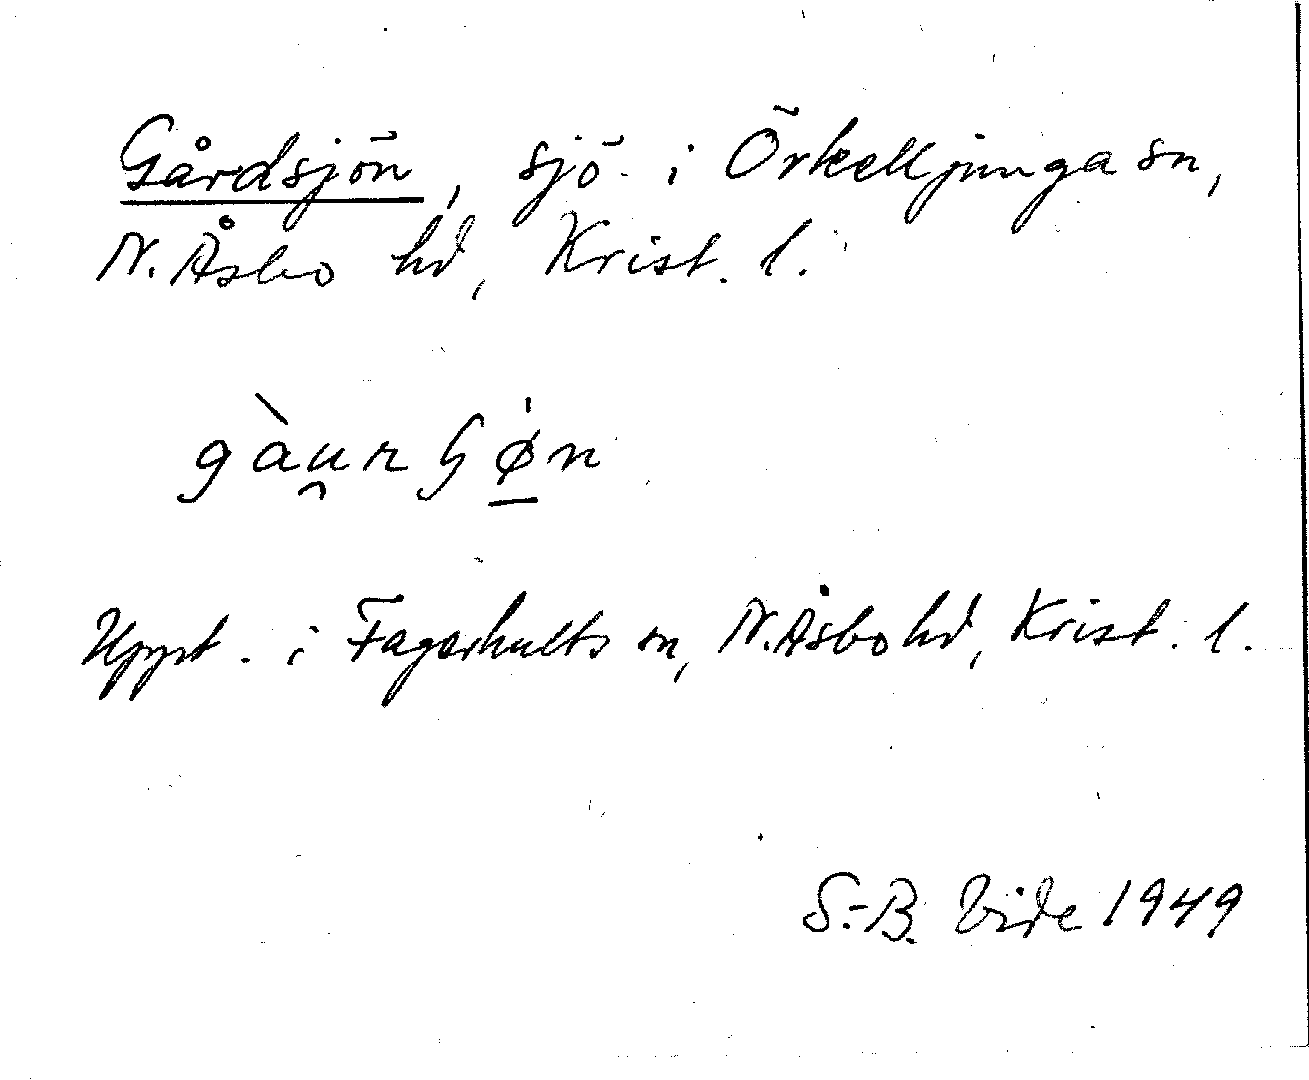 Gårdsjön, sjö i Örkelljunga sn,
N. Åsbo hd, Krist. l.
gàu̯rʃø̱̍n
Uppt. i Fagerhults sn, N. Åsbo hd, Krist. l.
S.-B. Vide 1949